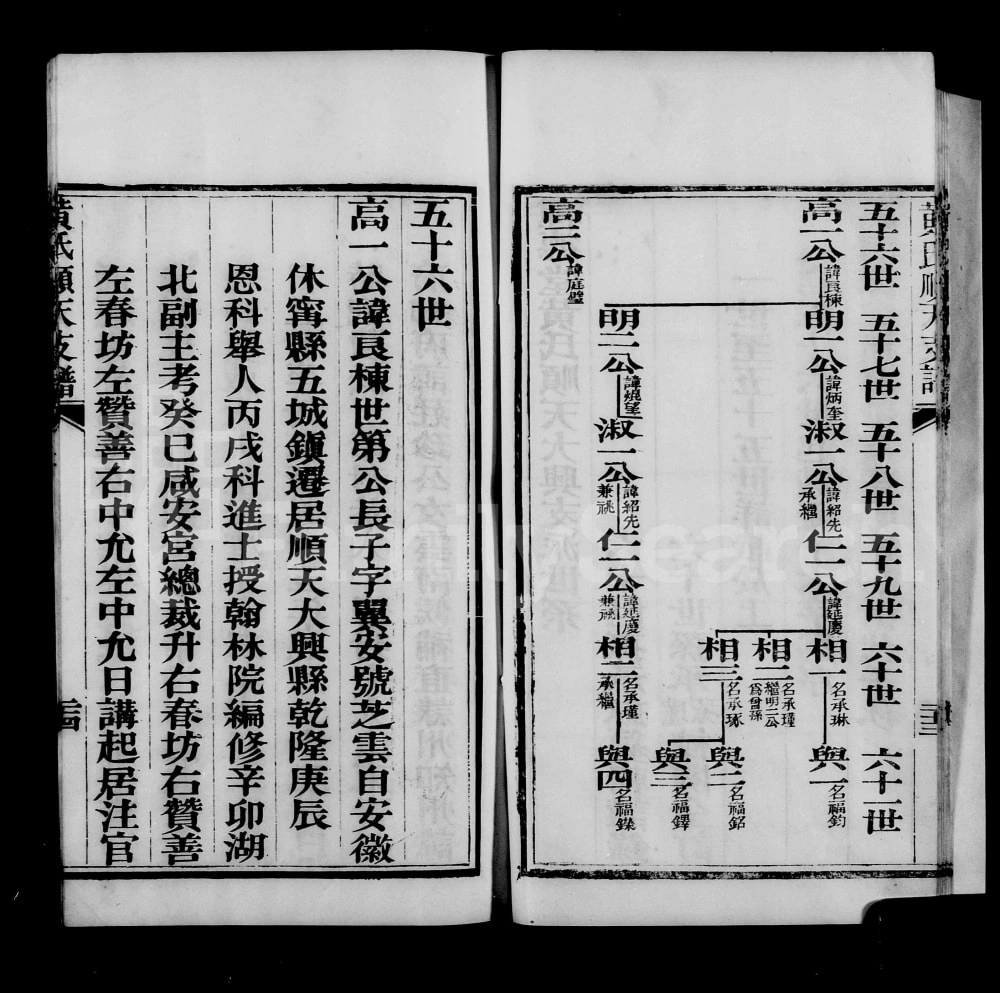 黃氏順天支譜
五十六世 五十七世 五十八世 五十九世 六十世 六十一世
高一公 諱良棟 明一公 諱炳奎 淑一公 諱紹先 承繼 仁一公 諱延慶 相一 名承琳 與一 名福鈞
相二 名承瑾 繼明二公為曾孫
相三 名承琢 與二 名福銘
與三 名福鐸
明二公 諱燒望 淑一公 諱紹先 兼祧 仁一公 諱延慶 兼祧 相二 名承瑾 承繼 與四 名福鏶
高二公 諱庭璧
三十三
五十六世
高一公諱良棟世第公長子字翼安號芝雲自安徽
休寧縣五城鎮遷居順天大興縣乾隆庚辰
恩科舉人丙戌科進士授翰林院編修辛卯湖
北副主考癸巳咸安宮總裁升右春坊右贊善
左春坊左贊善右中允左中允日講起居注官
黃氏順天支譜
三十四